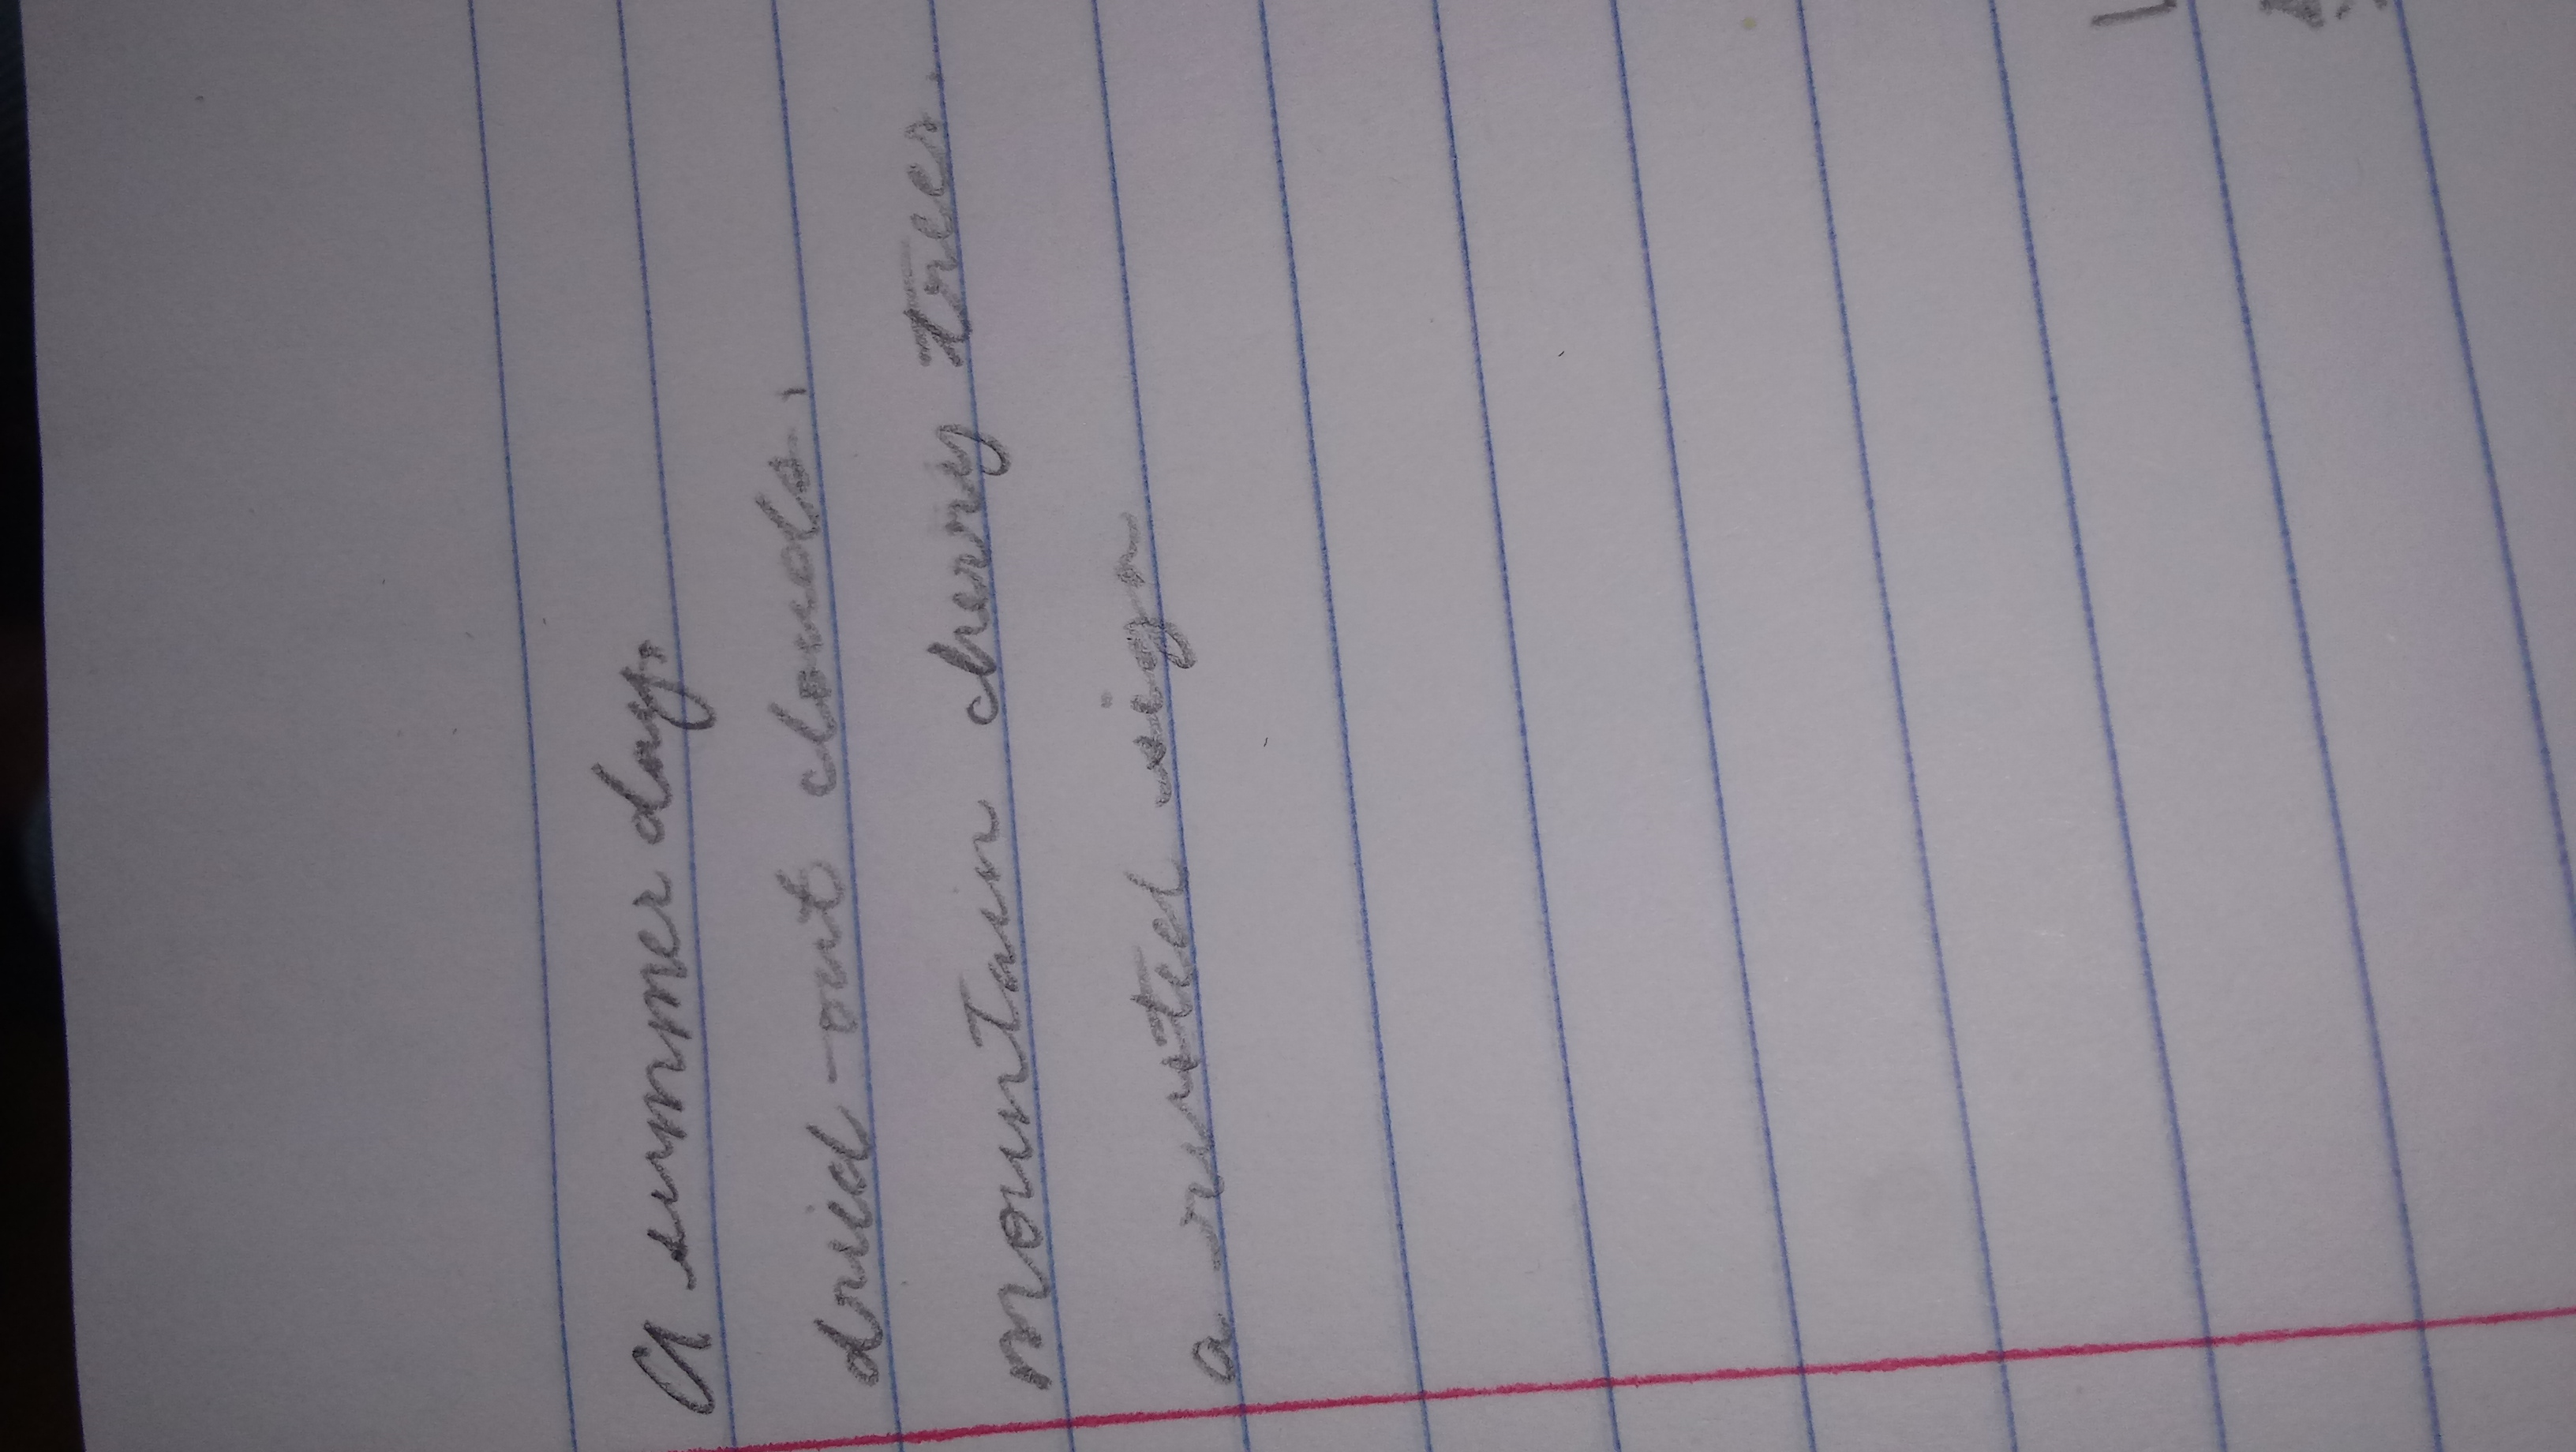 A summer day,
dried-out clouds,
mountain cherry trees.
a rusted sign